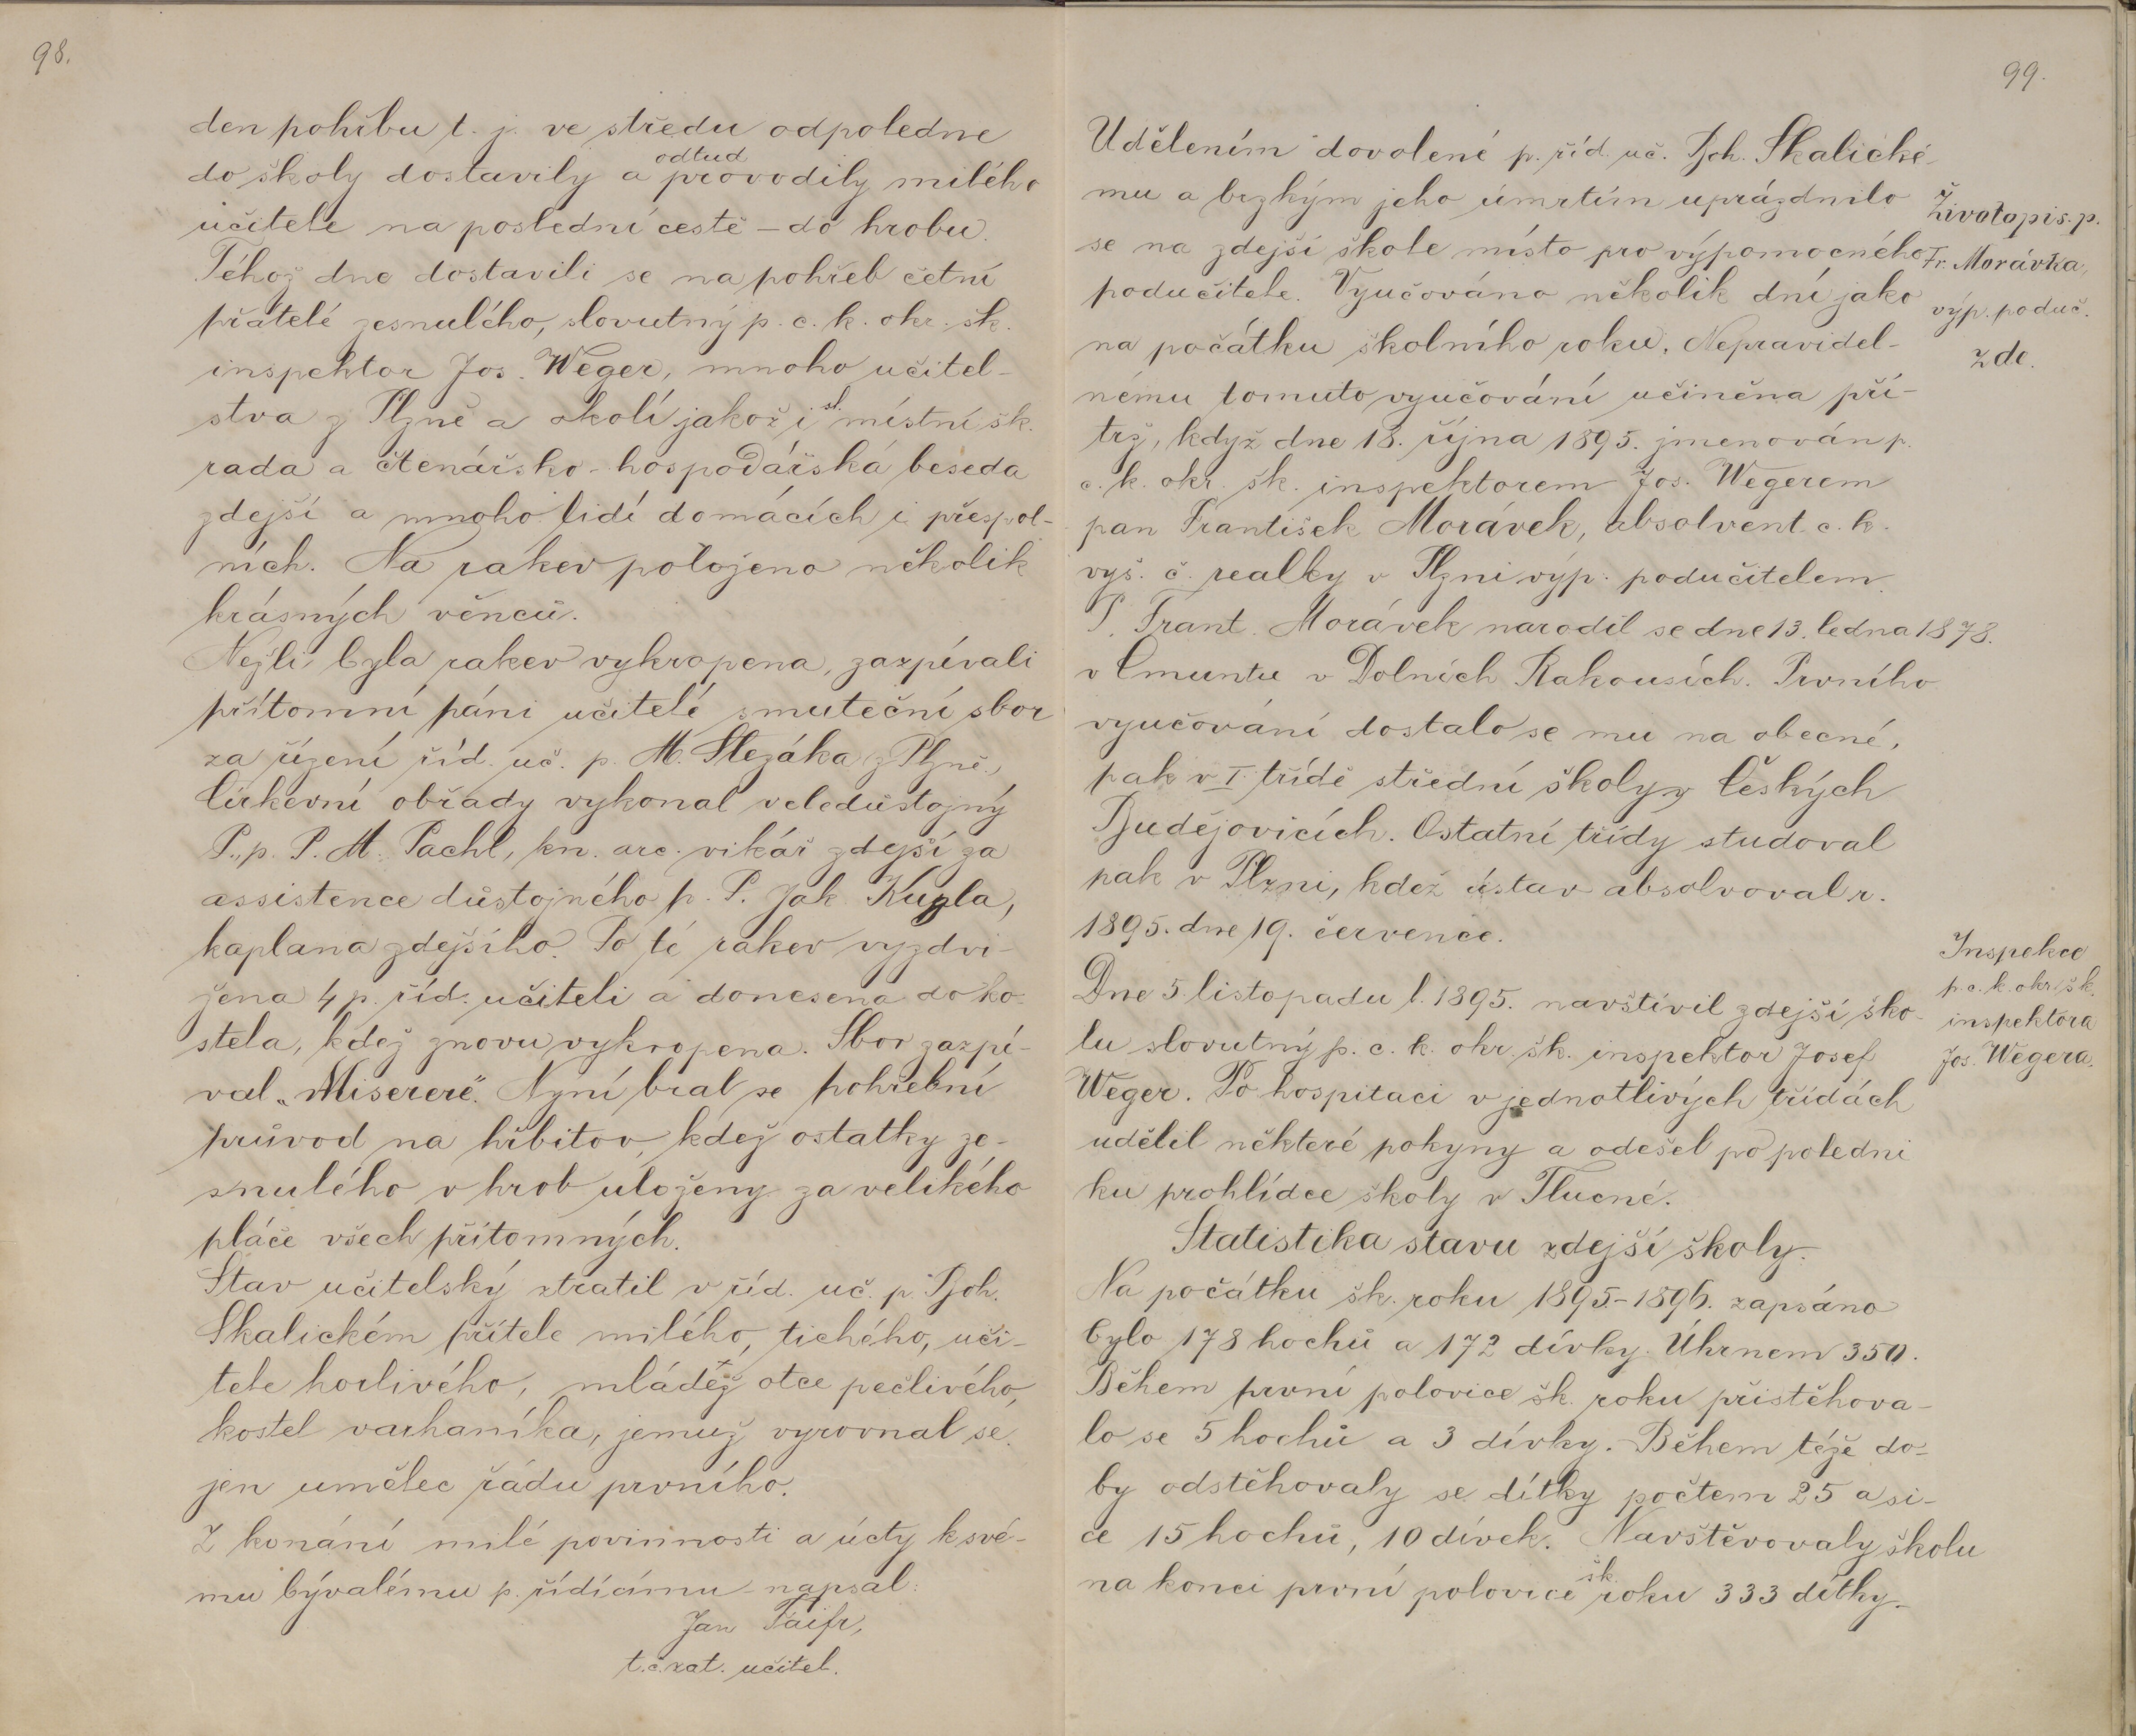 98.
den pohřbu t. j. ve středu odpoledne
odtud
do školy dostavily a provodily milého
učitele na poslední cestě – do hrobu.
Téhož dne dostavili se na pohřeb četní
přátelé zesnulého, slovutný p. c. k. okr. šk.
inspektor Jos. Weger, mnoho učitel-
stva z Plzně a okolí jakož i sl. místní šk.
rada a čtenářsko-hospodářská beseda
zdejší a mnoho lidí domácích i přespol-
ních. Na rakev položeno několik
krásných věnců.
Nežli byla rakev vykropena, zazpívali
přítomní páni učitelé smuteční sbor
za řízení říd. uč. p. M. Slezáka z Plzně.,
Církevní obřady vykonal veledůstojný
P., p. P. M. Pachl, kn. arc. vikář zdejší za
assistence důstojného p. P. Jak. Kuzla,
kaplana zdejšího. Po té rakev vyzdvi-
žena 4 p. říd. učiteli a donesena do ko-
stela, kdež znovu vykropena. Sbor zazpí-
val „Misereré“. Nyní bral se pohřební
průvod na hřbitov, kdež ostatky ze-
snulého v hrob uloženy za velikého
pláče všech přítomných.
Stav učitelský ztratil v říd. uč. p. Boh.
Skalickém přítele milého, tichého, uči-
tele horlivého, mláděž otce pečlivého,
kostel varhaníka, jemuž vyrovnal se
jen umělec řádu prvního.
Z konání milé povinnosti a úcty k své-
mu bývalému p. řídícímu napsal:
Jan Taifr,
t. č. zat. učitel.
99.
Udělením dovolené p. říd. uč. Boh. Skalické-
mu a brzkým jeho úmrtím uprázdnilo
se na zdejší škole místo pro výpomocného
podučitele. Vyučováno několik dní jako
na počátku školního roku. Nepravidel-
nému tomuto vyučování učiněna pří-
trž, když dne 18. října 1895. jmenován p.
c. k. okr. šk. inspektorem Jos. Wegerem
pan František Morávek, absolvent c. k.
vyš. č. realky v Plzni výp. podučitelem.
Životopis p.
Fr. Morávka,
výp. poduč.
zde.
P. Frant. Morávek narodil se dne 13. ledna 1878.
v Cmuntu v Dolních Rakousích. Prvního
vyučování dostalo se mu na obecné,
pak v I. třídě střední školy v Českých
Budějovicích. Ostatní třídy studoval
pak v Plzni, kdež ústav absolvoval r.
1895. dne 19. července.
Dne 5 listopadu l. 1895. navštívil zdejší ško-
lu slovutný p. c. k. okr. šk. inspektor Josef
Weger. Po hospitaci v jednotlivých třídách
udělil některé pokyny a odešel po poledni
ku prohlídce školy v Tlucné.
Inspekce
p. c. k. okr. šk.
inspektora
Jos. Wegera.
Statistika stavu zdejší školy.
Na počátku šk. roku 1895.–1896. zapsáno
bylo 178 hochů a 172 dívky. Úhrnem 350.
Během první polovice šk. roku přistěhova-
lo se 5 hochů a 3 dívky. Během téže do-
by odstěhovaly se dítky počtem 25 a si-
ce 15 hochů, 10 dívek. Navštěvovaly školu
šk.
na konci první polovice roku 333 dítky.